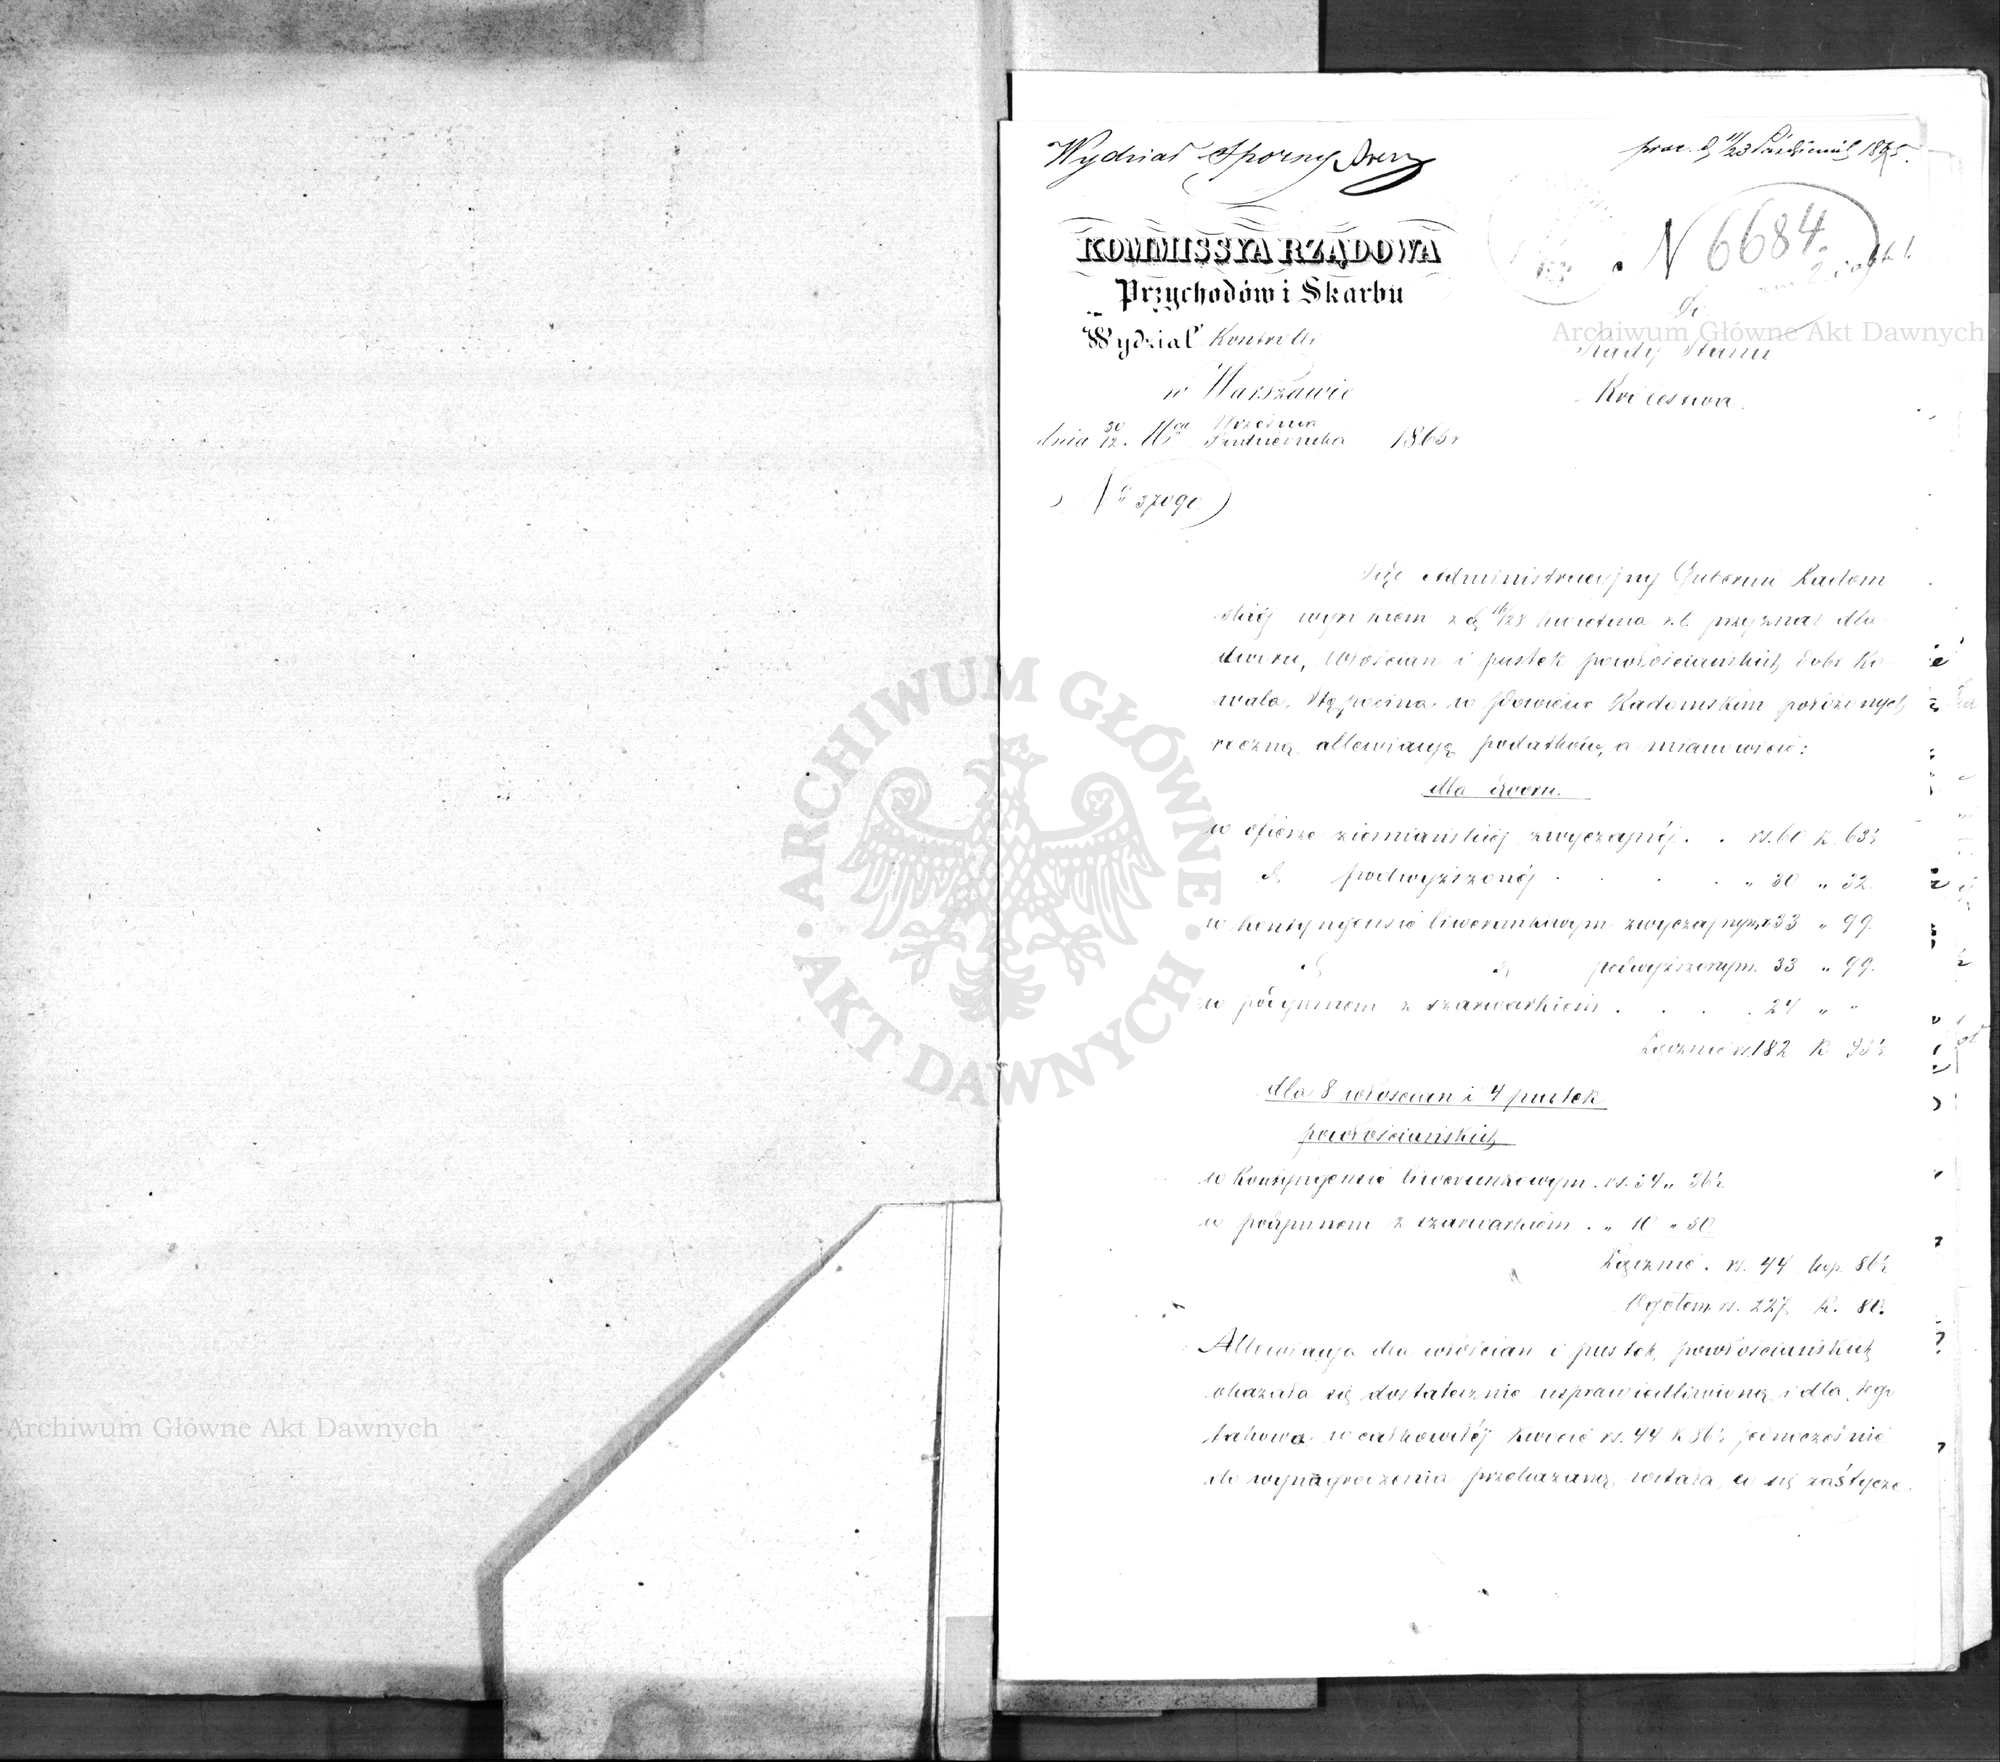 Wydział Sporny
prez. d. 11/23 Października 1865.
KOMMISSYA RZĄDOWA
Przychodów i Skarbu
Wydział Kontrolli
w Warszawie
dnia 30/12 Września/Października 1865 r
N 37090
N 6684.
Do
Rady Stanu
Królestwa.
Rząd Administracyjny Gubernii Radom
skiéj wyrokiem z d. 16/28 kwietnia r.b. przyznał dla
dworu, włościan i pustek powłościańskich dóbr Ko
wala Stępocina w Powiecie Radomskim położonych
roczną allewiacyą podatków, a mianowicie:
dla dworu.
w ofierze ziemiańskiéj zwyczajnéj . . rs. 60 k. 63½
d. podwyższonéj . . . . „ 30 „ 32.
w kontyngensie liwerunkowym zwyczajnym 33 „ 99.
d. d. podwyższonym. 33 „ 99.
w podymnem z szarwarkiem . . . . 24 „ „
Łącznie rs. 182 k. 93½
dla 8 włościan i 4 pustek
powłościańskich
w kontyngensie liwerunkowym . rs. 34 „ 36½
w podymnem z szarwarkiem . „ 10 „ 50
Łącznie . rs. 44 kop. 86½
Ogółem rs. 227 k. 80.
Allewiacya dla włościan i pustek powłościańskich
okazała się dostatecznie usprawiedliwioną i dla tego
takowa w całkowitéj kwocie rs. 44 k 86½ jednocześnie
do wynagrodzenia przekazaną została, co się zaś tycze
Archiwum Główne Akt Dawnych
Archiwum Główne Akt Dawnych
ARCHIWUM GŁÓWNE · AKT DAWNYCH ·